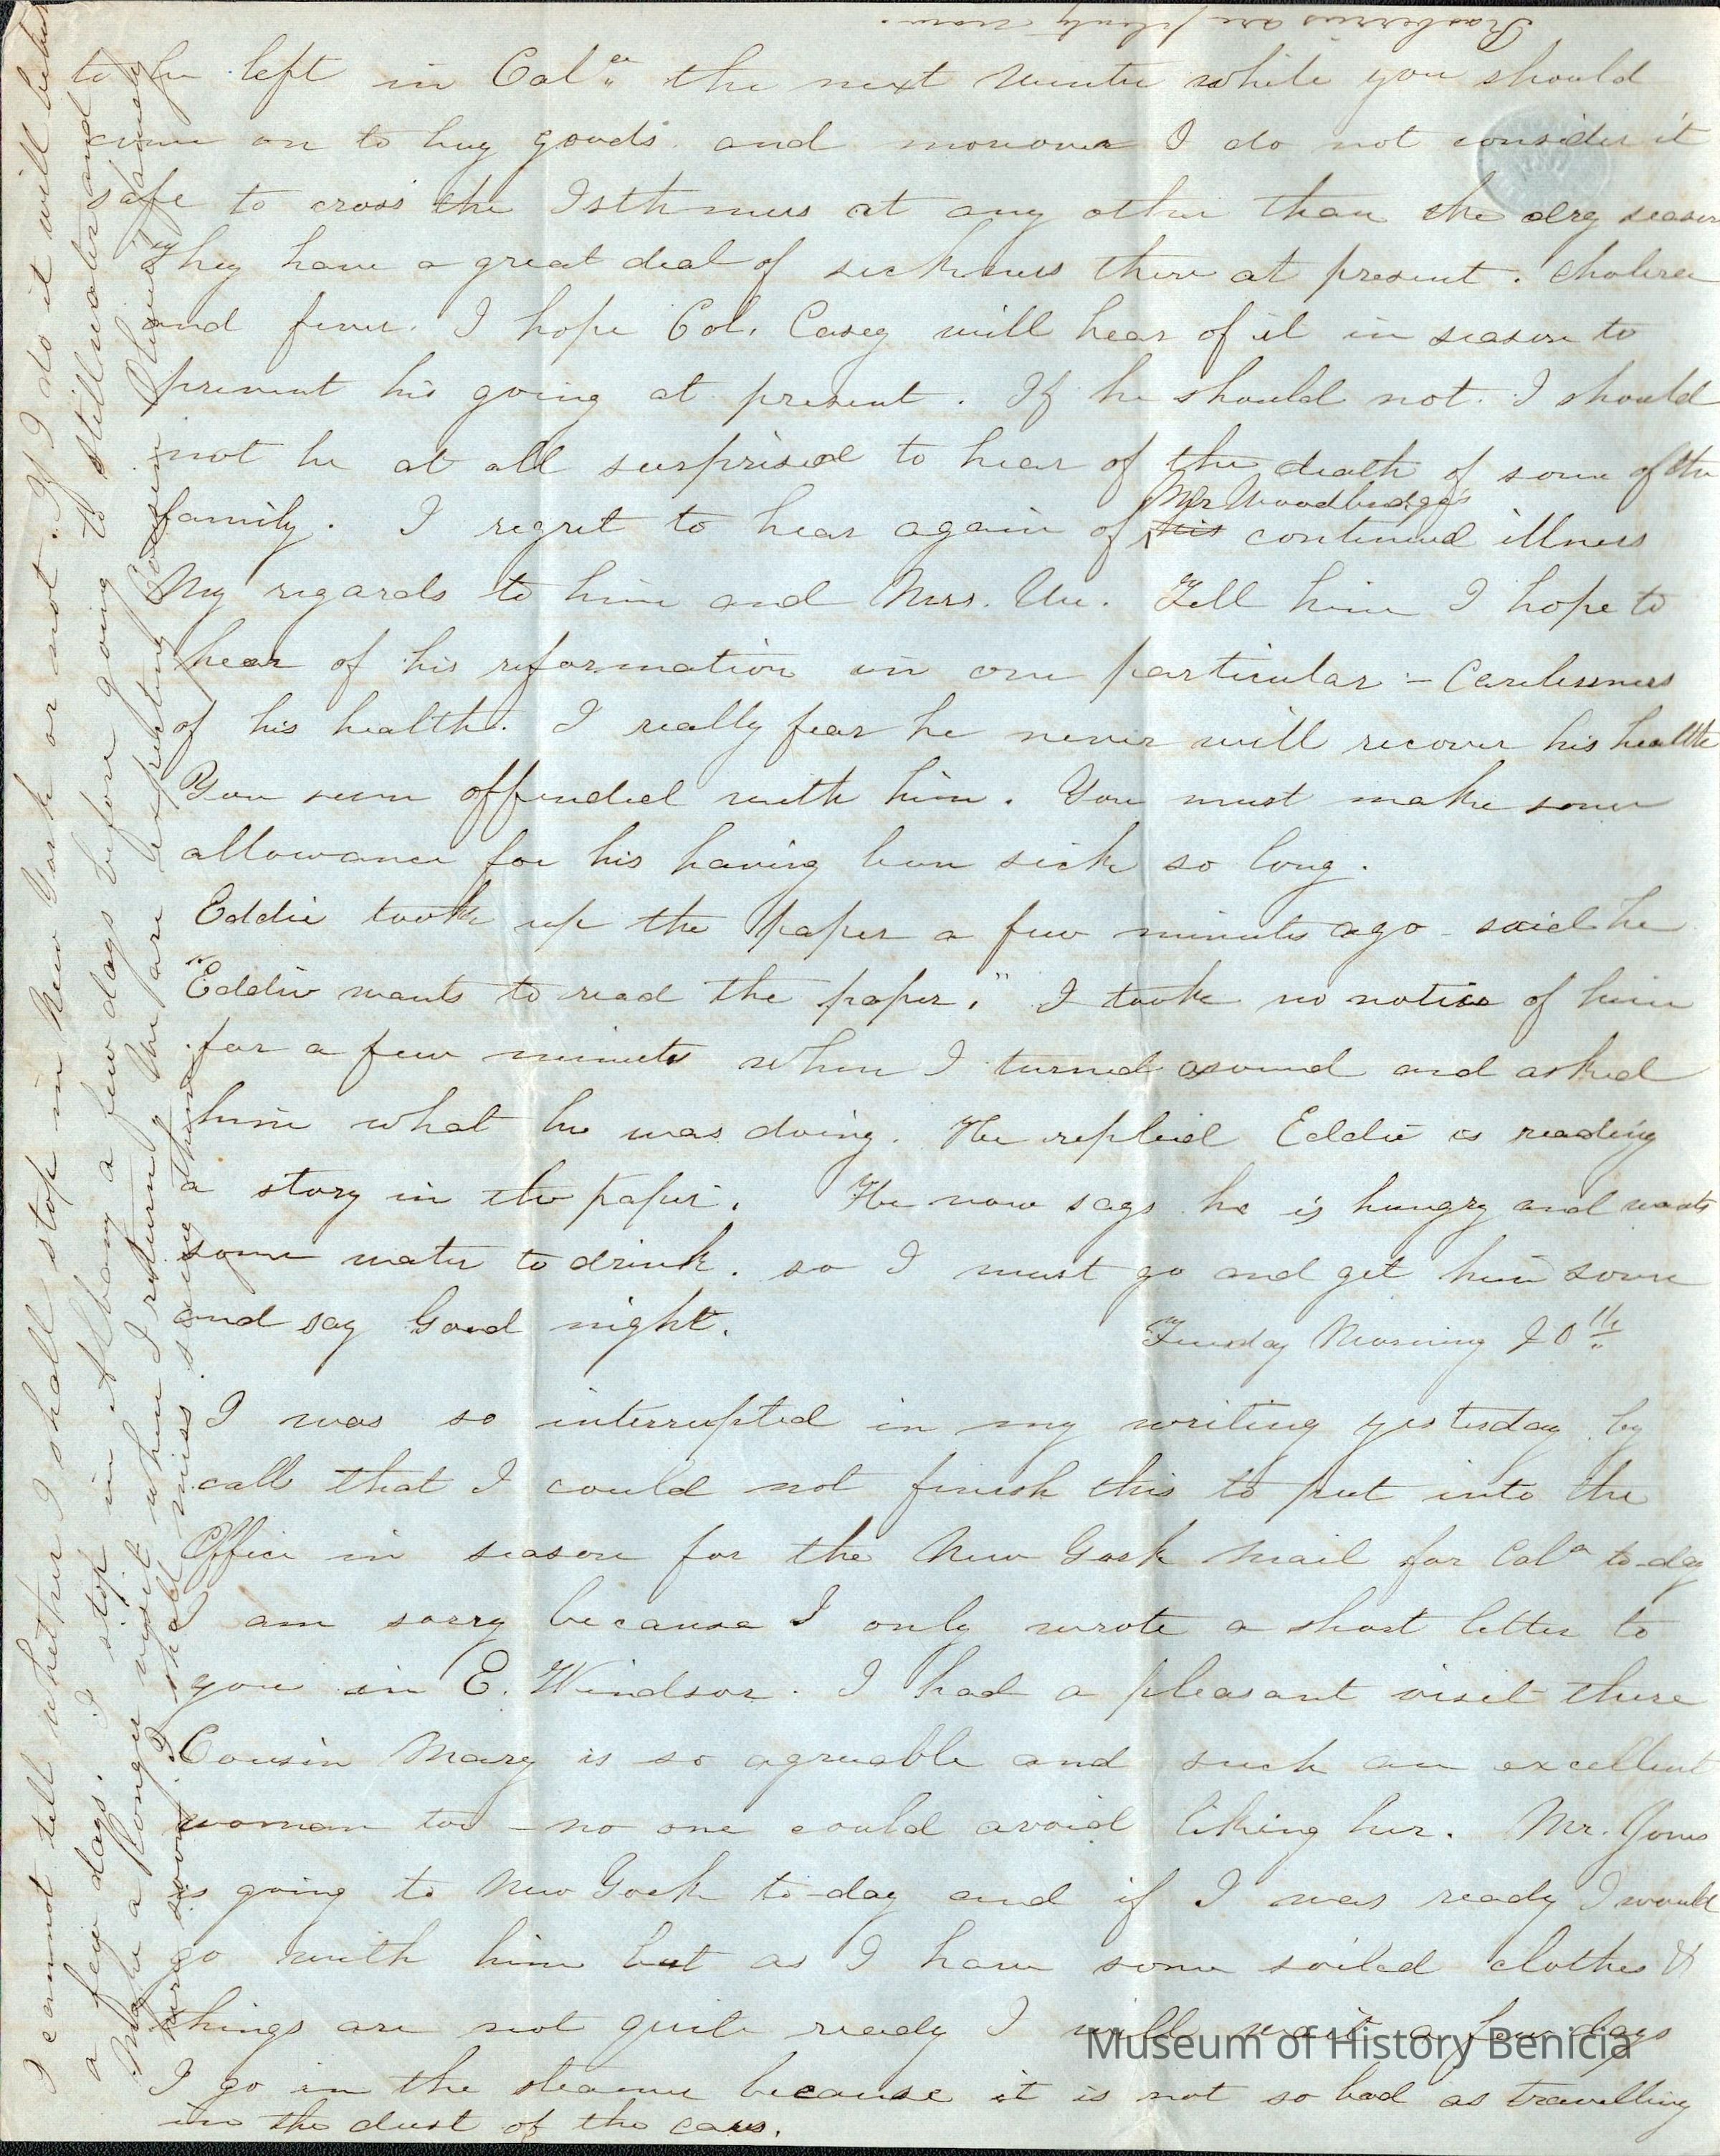 Rasberries are plenty now.
to be left in Cala the next winter while you should
come on to buy goods. and moreover I do not consider it
safe to cross the Isthmus at any other than the dry season
They have a great deal of sickness there at present. Cholera
and fever. I hope Col. Casey will hear of it in season to
prevent his going at present. If he should not. I should
not be at all surprised to hear of the death of some of the
family. I regret to hear again of his Mr Woodbridge's continued illness
My regards to him and Mrs. W. Tell him I hope to
hear of his reformation in one particular - Carelessness
of his health. I really fear he never will recover his health
You seem offended with him. You must make some
allowance for his having been sick so long.
Eddie took up the paper a few minutes ago - said he
"Eddie wants to read the paper." I took no notice of him
for a few minutes when I turned around and asked
him what he was doing. He replied Eddie is reading
a story in the paper. He now says he is hungry and wants
some water to drink. so I must go and get him some
and say Good night.
Tuesday Morning 20th
I was so interrupted in my writing yesterday by
calls that I could not finish this to put into the
Office in season for the New York mail for Cala to-day
I am sorry because I only wrote a short letter to
you in E. Windsor. I had a pleasant visit there
Cousin Mary is so agreeable and such an excellent
woman too - no one could avoid liking her. Mr. Jones
is going to New York to-day and if I was ready I would
go with him but as I have some soiled clothes &
things are not quite ready I will wait a few days
I go in the steamer because it is not so bad as travelling
in the dust of the cars.
I cannot tell whether I shall stop in New York or not. If I do it will be but
a few days. I stop in Albany a few days before going to Stillwater and
make a longer visit when I return. We are expecting Cousin
here soon. I shall miss seeing them.
Museum of History Benicia